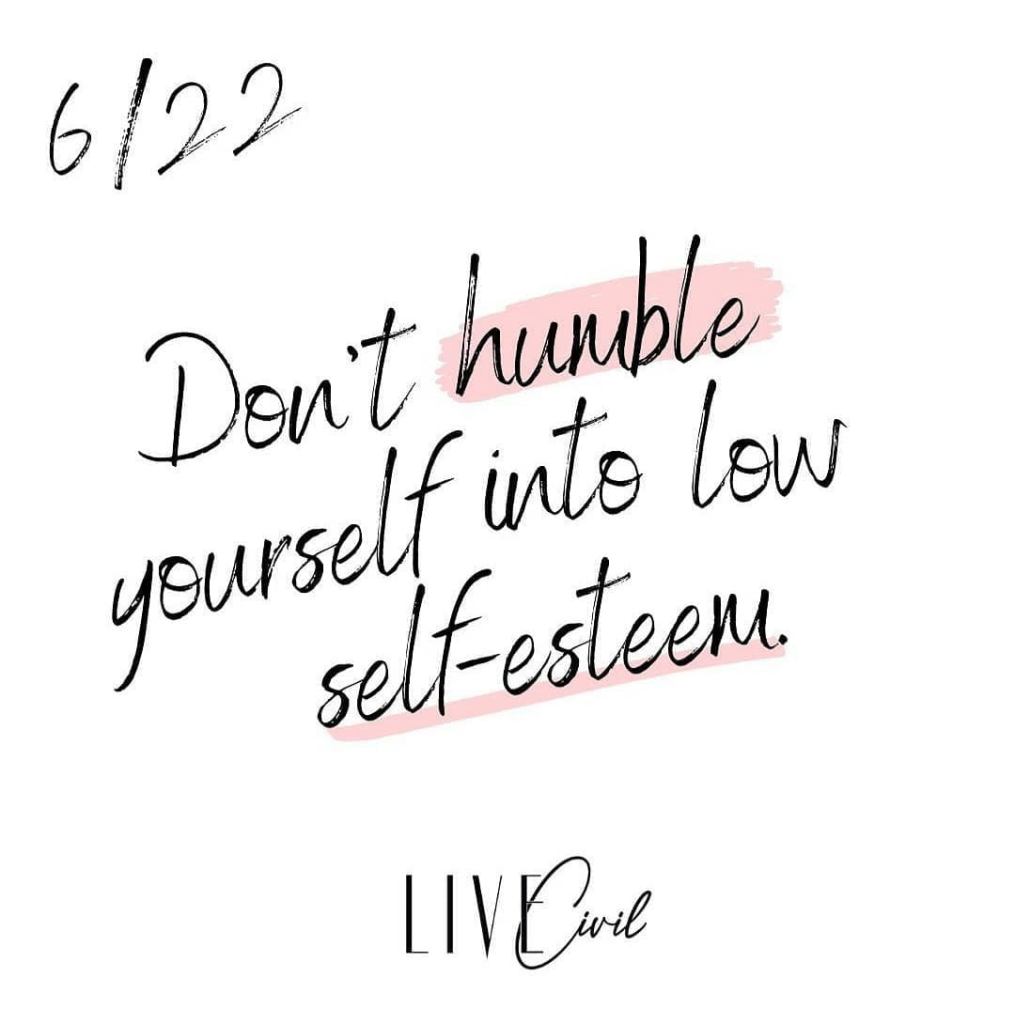 6/22
Don't humble
yourself into low
self-esteem.
LIVE Civil